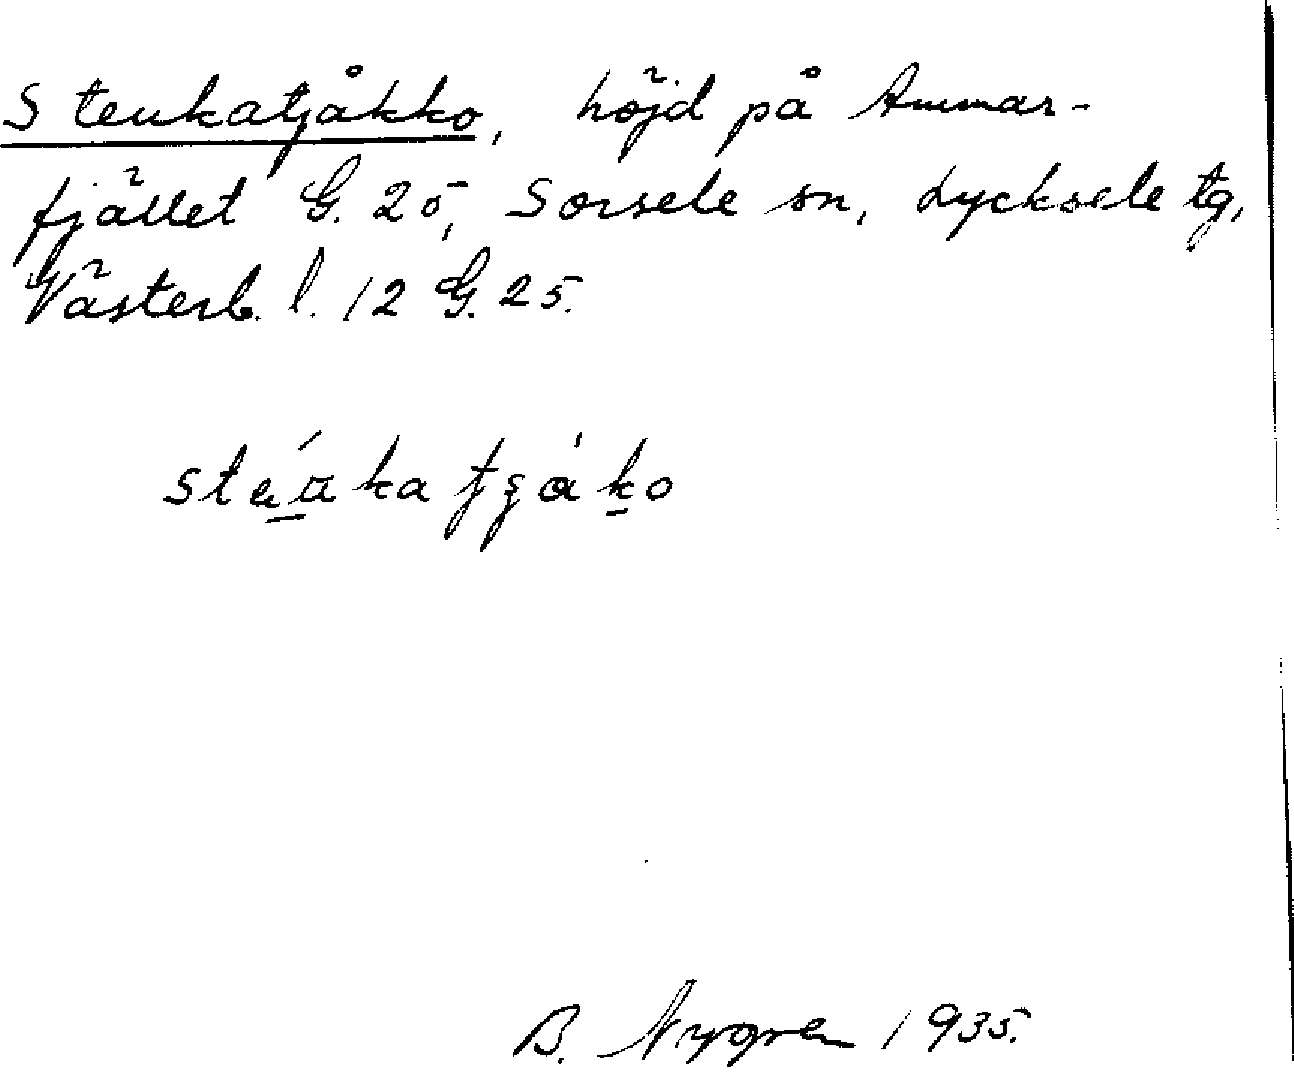 Stenkatjåkko, höjd på Ammar-
fjället G. 25, Sorsele sn, Lycksele tg,
Västerb. l. 12 G. 25.
B. Nygren 1935.